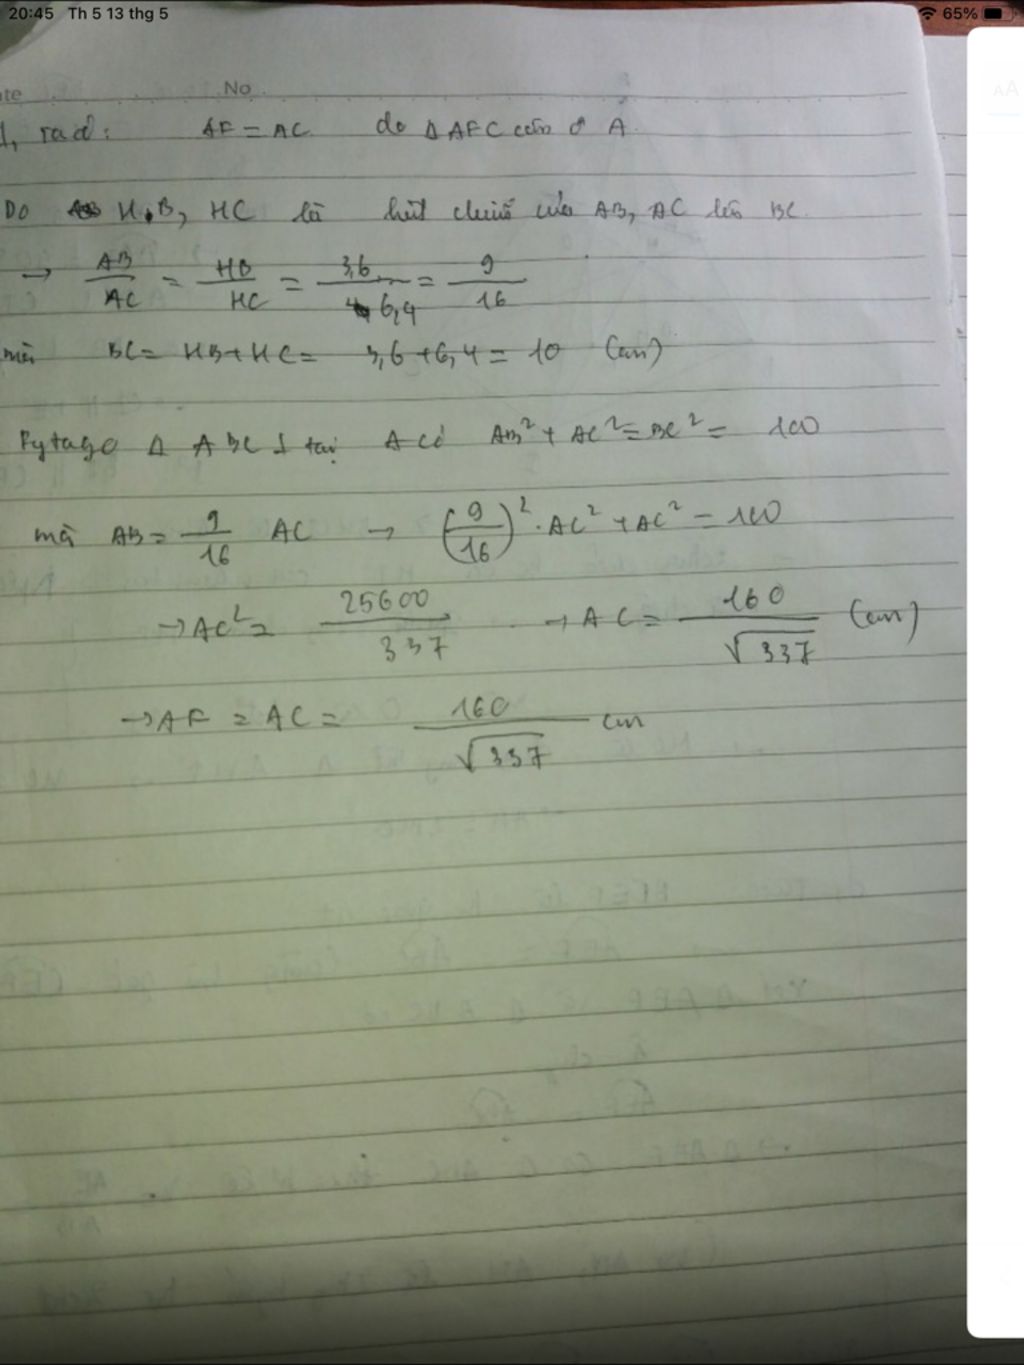 20:45 Th 5 13 thg 5 65%
te No
AF = AC do Δ AFC cân ở A
Do H,B, HC là hút chiếu của AB, AC lên BC
→ AB/AC = HB/HC = 3,6/6,4 = 9/16
mà BC = HB + HC = 3,6 + 6,4 = 10 (cm)
Pytago Δ ABC ⊥ tại A có AB² + AC² = BC² = 100
mà AB = 9/16 AC → (9/16)² . AC² + AC² = 100
→ AC² = 25600/337 → AC = 160/√337 (cm)
→ AF = AC = 160/√337 cm
AA